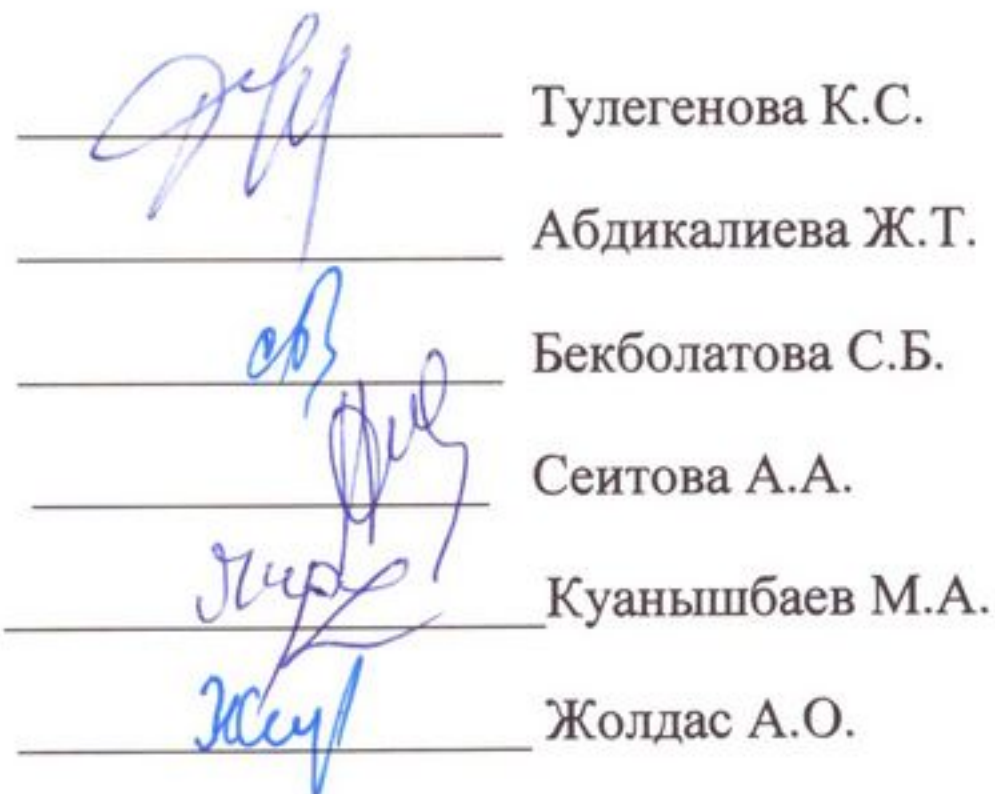 Тулегенова К.С.
Абдикалиева Ж.Т.
Бекболатова С.Б.
Сеитова А.А.
Куанышбаев М.А.
Жолдас А.О.